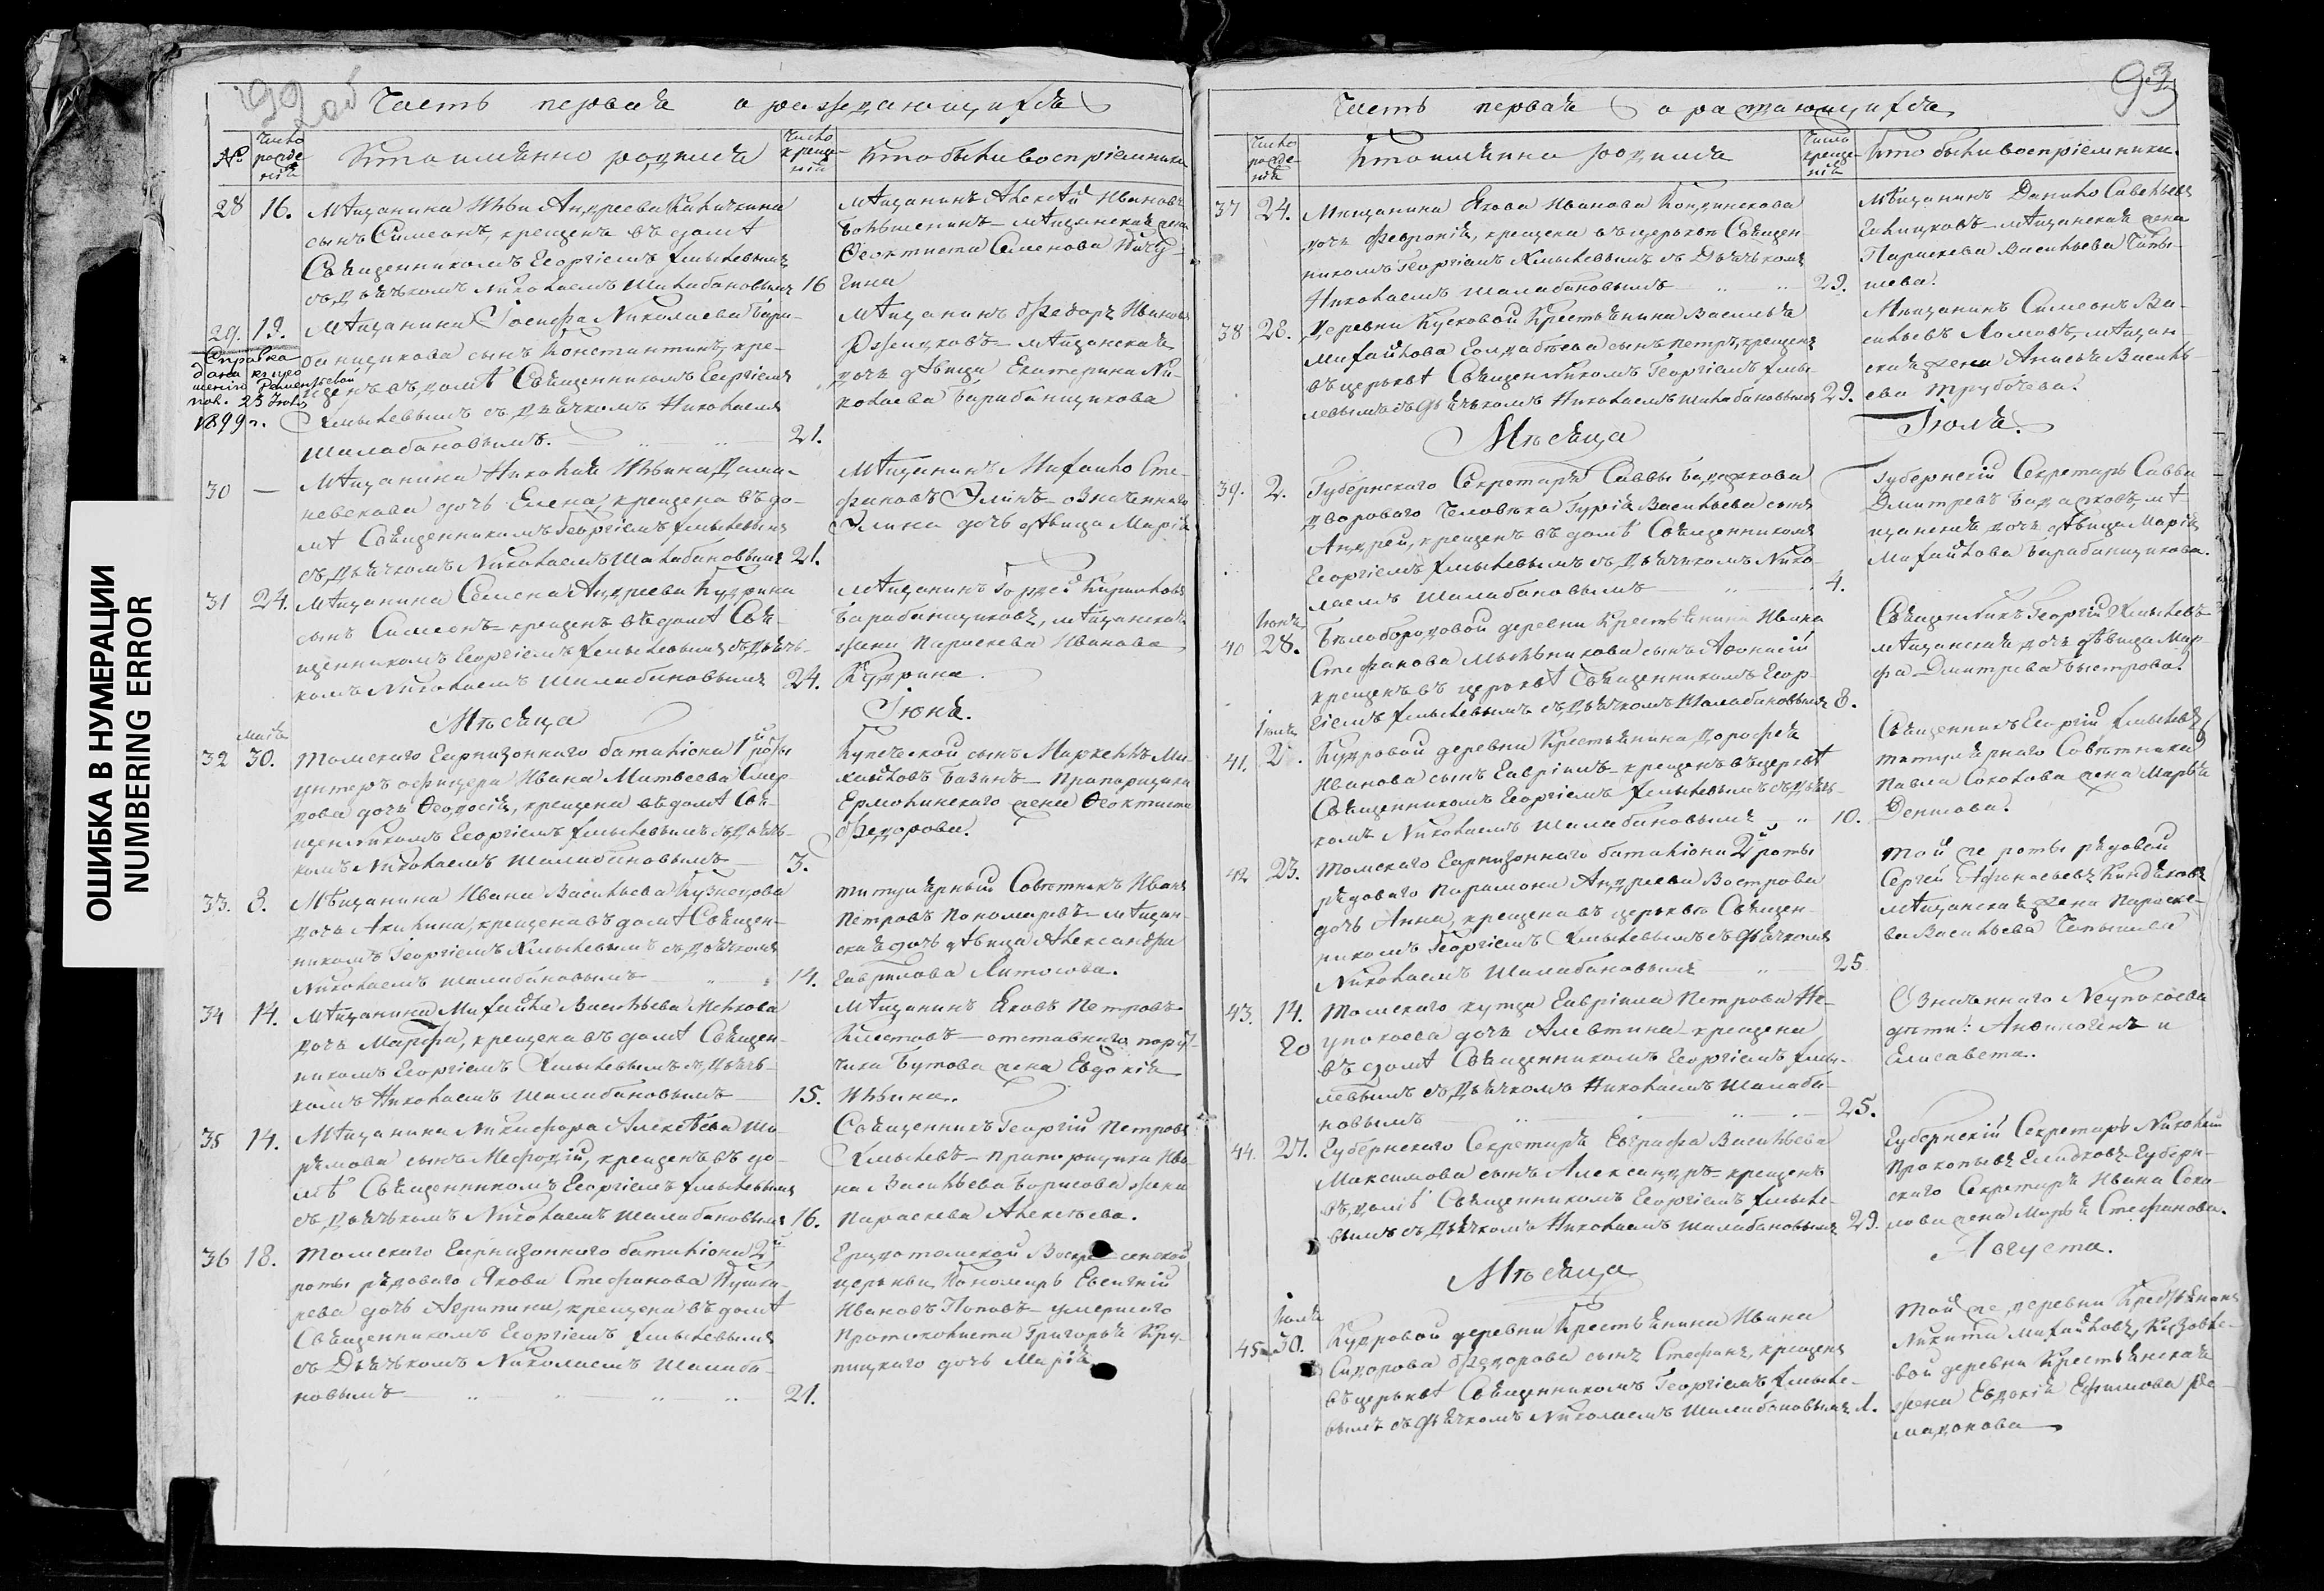 ОШИБКА В НУМЕРАЦИИ
NUMBERING ERROR
92 об
Часть первая о раждающихся
№ Число рожденія Кто именно родился Число крещенія Кто были воспріемники
28 16. Мѣщанина Ильи Андреева
сынъ Симеонъ, крещенъ въ домѣ
Священникомъ Георгіемъ Хмылевымъ
съ дьячкомъ Николаемъ Шалабановымъ 16
Мѣщанинъ Алексѣй Ивановъ
мѣщанская жена
Ѳеоктиста Семенова
29. 19. Мѣщанина Іосифа Николаева Бара-
банщикова сынъ Константинъ, кре-
щенъ въ домѣ Священникомъ Георгіемъ
Хмылевымъ съ дьячкомъ Николаемъ
Шалабановымъ. 21.
Справка
дана
25 Іюля
1899 г.
Мѣщанинъ Федоръ Ивановъ
мѣщанская
дочь дѣвица Екатерина Ни-
колаева Барабанщикова
30 — Мѣщанина Николая Ильина Дома-
невскова дочь Елена, крещена въ до-
мѣ Священникомъ Георгіемъ Хмылевымъ
съ дьячкомъ Николаемъ Шалабановымъ 21.
Мѣщанинъ Михайло Сте-
фановъ Элинъ означеннаго
Элина дочь дѣвица Марія
31 24. Мѣщанина Семена Андреева Кудрина
сынъ Симеонъ крещенъ въ домѣ Свя-
щенникомъ Георгіемъ Хмылевымъ съ дьяч-
комъ Николаемъ Шалабановымъ 24.
Мѣщанинъ Гордей Кириловъ
Барабанщиковъ, мѣщанская
жена Параскева Иванова
Кудрина.
Мѣсяца Іюня.
Мая
32 30. Томскаго Гарнизоннаго баталіона 1й роты
унтеръ офицера Ивана Матвеева Смер-
дова дочь Ѳеодосія, крещена въ домѣ Свя-
щенникомъ Георгіемъ Хмылевымъ съ дьяч-
комъ Николаемъ Шалабановымъ 3.
Купеческой сынъ Маркеллъ Ми-
хайловъ Базинъ — Прапорщика
Ермолинскаго жена Ѳеоктиста
Федорова.
33. 8. Мѣщанина Ивана Васильева Кузнецова
дочь Акилина, крещена въ домѣ Священ-
никомъ Георгіемъ Хмылевымъ съ дьячкомъ
Николаемъ Шалабановымъ 14.
титулярный Советникъ Иванъ
Петровъ Пономаревъ — мѣщан-
ская дочь дѣвица Александра
Гаврилова Литосова.
34 14. Мѣщанина Михайла Васильева Мелкова
дочь Марфа, крещена въ домѣ Священ-
никомъ Георгіемъ Хмылевымъ съ дьяч-
комъ Николаемъ Шалабановымъ 15.
Мѣщанинъ Яковъ Петровъ
отставнаго пору-
чика Бутова жена Евдокія
Ильина.
35 14. Мѣщанина Никифора Алексѣева Шо-
рямова сынъ Мефодій, крещенъ въ до-
мѣ Священникомъ Георгіемъ Хмылевымъ
съ дьячкомъ Николаемъ Шалабановымъ 16.
Священникъ Георгій Петровъ
Хмылевъ — прапорщика Ива-
на Васильева Борисова жена
Параскева Алексѣева.
36 18. Томскаго Гарнизоннаго баталіона 2й
роты рядоваго Якова Стефанова Пушка-
рева дочь Агрипина, крещена въ домѣ
Священникомъ Георгіемъ Хмылевымъ
съ Дьячькомъ Николаемъ Шалаба-
новымъ 21.
Градотомской Воскресенской
церкви Пономарь Евсигній
Ивановъ Поповъ — умершаго
Протоколиста Григорья Кру-
пицкаго дочь Марія
93
Часть первая о раждающихся
Число рожденія Кто именно родился Число крещенія Кто были воспріемники.
37 24. Мищанина Якова Иванова Кондинскова
дочь Февронія, крещена въ церкви Священ-
никомъ Георгіемъ Хмылевымъ съ Дьячькомъ
Николаемъ Шалабановымъ 29.
Мѣщанинъ Данило Савельевъ
мѣщанская жена
Параскева Васильева Чаты-
шева.
38 28. Деревни Кусковой Крестьянина Василья
Михайлова Солдатева сынъ Петръ, крещенъ
въ церквѣ Священникомъ Георгіемъ Хмы-
левымъ съ дьячькомъ Николаемъ Шалабановымъ 29.
Мѣщанинъ Симеонъ Ва-
сильевъ Ломовъ, мѣщан-
ская жена Анисья Василь-
ева Трубачева.
Мѣсяца Іюля.
39. 2. Губернскаго Секретаря Саввы Бадажкова
двороваго Человека Гурія Васильева сынъ
Андрей, крещенъ въ домѣ Священникомъ
Георгіемъ Хмылевымъ съ Дьячькомъ Нико-
лаемъ Шалабановымъ 4.
Губернскій Секретарь Савва
Дмитревъ Бадажковъ, мѣ-
щанская дочь дѣвица Марія
Михайлова Барабанщикова.
Іюня
40 28. Белобородовой деревни Крестьянина Ивана
Стефанова Мыльникова сынъ Афонасій
крещенъ въ церквѣ Священникомъ Геор-
гіемъ Хмылевымъ съ Дьячкомъ Шалабановымъ 8.
Священникъ Георгій Хмылевъ
мѣщанская дочь дѣвица Мар-
фа Дмитрева Быстрова.
41. Кудровой деревни Крестьянина Дорофея
Иванова сынъ Гавріилъ — крещенъ въ церквѣ
Священникомъ Георгіемъ Хмылевымъ съ дьяч-
комъ Николаемъ Шалабановымъ 10.
Священникъ Георгій Хмылевъ
титулярнаго Советника
Павла Соколова жена Марья
Денисова.
42 23. Томскаго Гарнизоннаго баталіона 2й роты
рядоваго Парамона Андреева Вострова
дочь Анна, крещена въ церквѣ Священ-
никомъ Георгіемъ Хмылевымъ съ дьячкомъ
Николаемъ Шалабановымъ 25
той же роты рядовой
Сергей Афонасьевъ Киндяковъ
мѣщанская жена Параске-
ва Васильева Чатышева
43. 14. Томскаго купца Гавріила Петрова Не-
20 упокоева дочь Алевтина — крещена
въ домѣ Священникомъ Георгіемъ Хмы-
левымъ съ Дьячкомъ Николаемъ Шалаба-
новымъ 25.
Означеннаго Неупокоева
дѣти: Анфиногенъ и
Елисавета.
44. 27. Губернскаго Секретаря Евграфа Васильева
Максимова сынъ Александръ — крещенъ
въ домѣ Священникомъ Георгіемъ Хмыле-
вымъ съ Дьячкомъ Николаемъ Шалабановымъ 29.
Губернскій Секретарь Николай
Прокопьевъ Губерн-
скаго Секретаря Ивана Соко-
лова жена Марья Стефанова.
Мѣсяца Августа.
Іюля
45 30. Кудровой деревни Крестьянина Ивана
Сидорова Федорова сынъ Стефанъ, крещенъ
въ церквѣ Священникомъ Георгіемъ Хмыле-
вымъ съ дьячкомъ Николаемъ Шалабановымъ 1.
той же деревни Крестьянинъ
Никита Михайловъ,
вой деревни Крестьянская
жена Евдокія Ефимова